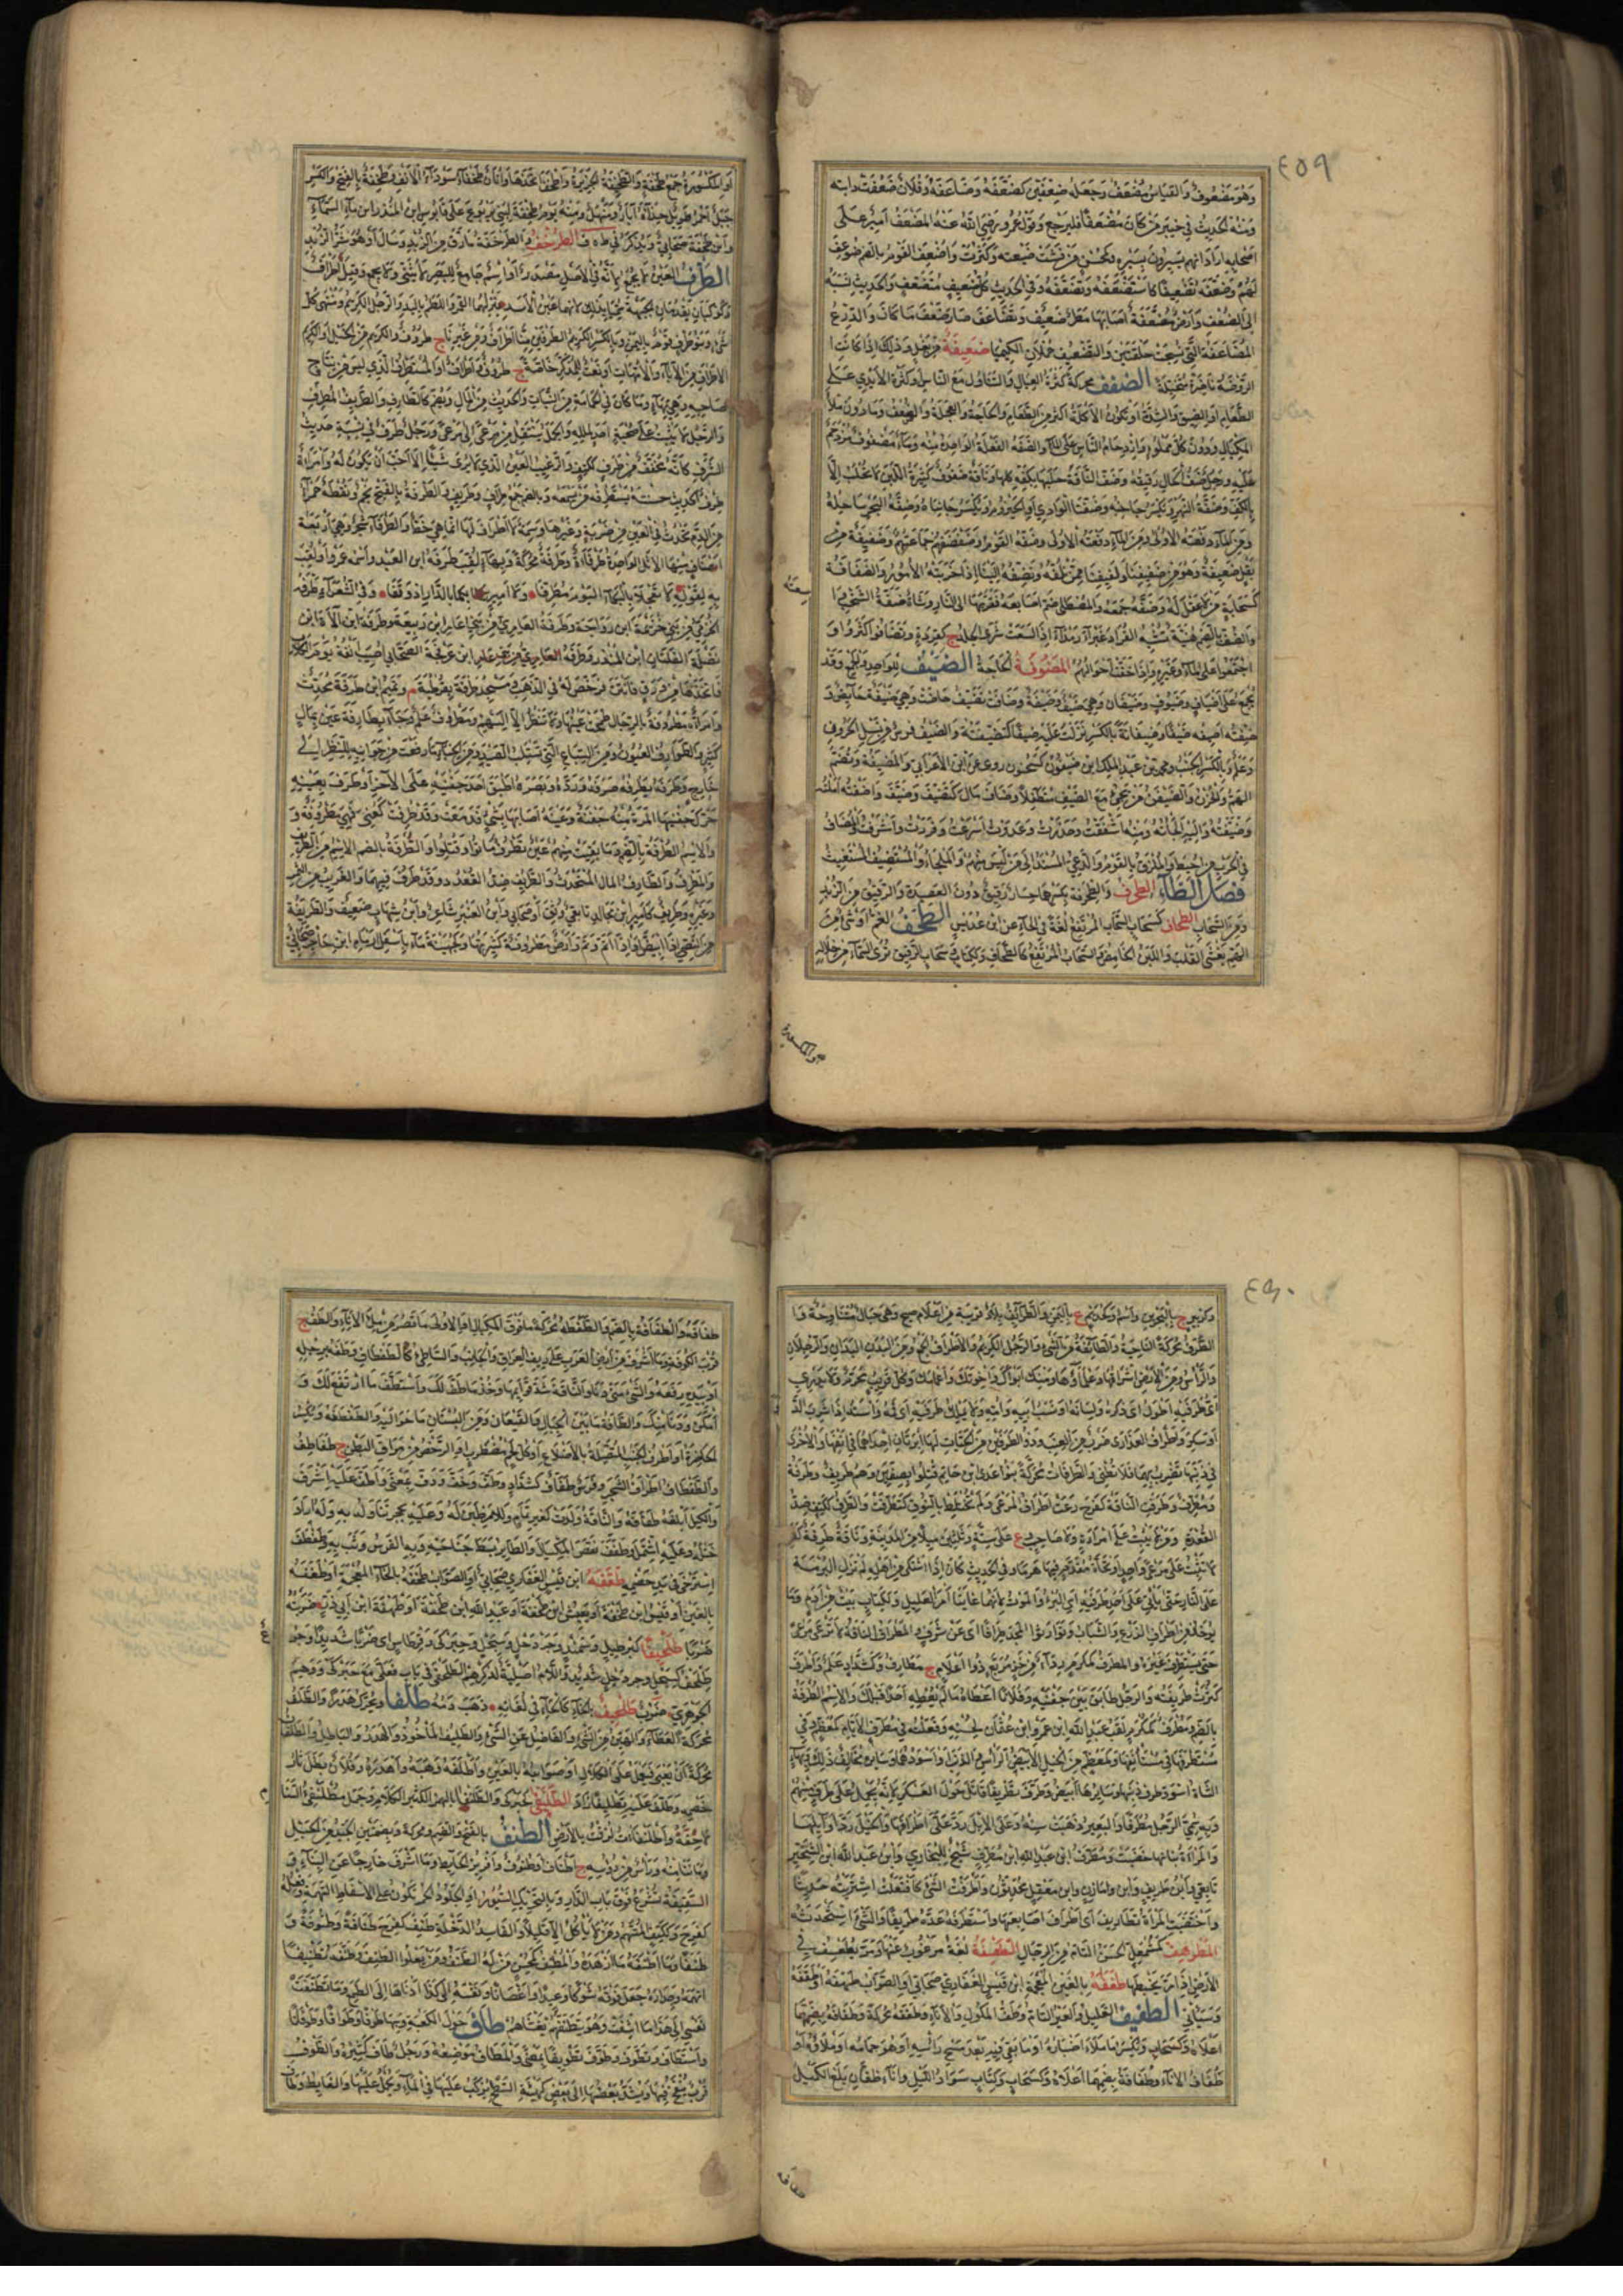 ٤٥٩
وهو مضعوف والقياس مضعف وجعله ضعفين كضعفه وضاعفه وفلان ضعفت دابته
ومنه الحديث في خيبر من كان مضعفا فليرجع وقول عمر رضي الله عنه المضعف امير على
اصحابه اراد انهم يسيرون بسيره وكمحسن من فشت ضيعته وكثرت واضعف القوم بالضم ضوعف
لهم وضعفه تضعيفا كاستضعفه وتضعفه وفي الحديث كل ضعيف متضعف والحديث نسبه
الى الضعف وارض مضعفة اصابها مطر ضعيف وتضاعف صار ضعف ما كان والدرع
المضاعفة التي نسجت حلقتين والتضعيف حملان الكيميا ضغيفة من بقل وذلك اذا كانت
الروضة ناضرة متخيلة الضفف محركة كثرة العيال والتناول مع الناس وكثرة الايدي على
الطعام او الضيق والشدة او تكون الاكلة اكثر من الطعام والحاجة والعجلة والضعف وما دون ملأ
المكيال ودون كل مملو وازدحام الناس على الماء والضفة الفعلة الواحدة منه وماء مضفوف مزدحم
عليه ورجل ضف الحال رقيقه وضف الناقة حلبها بكفه كلها وناقة ضفوف كثيرة اللبن لا تحلب الا
بالكف وضفة النهر ويكسر جانبه وضفتا الوادي او الحيزوم ويكسر جانباه وضفة البحر ساحله
ومن الماء دفعته الاولى وضفة القوم وضفضفتهم جماعتهم وضفيفة من
بقل ضغيفة وهو من ضفيفنا ولفيفنا ممن نلفه ونضفه الينا اذا حزبته الامور والضفافة
كسحابة من لا عقل له وضفه جمعه والمصطلي ضم اصابعه فقربها الى النار وشاة ضفة الشخب
والضف بالضم هنية تشبه القراد غبراء رمداء اذا لسعت شري الجلد ج كقردة وتضافوا كثروا و
اجتمعوا على الماء وغيره واذا خفت احوالهم المضوفة الحاجة الضيف للواحد والجمع وقد
يجمع على اضياف وضيوف وضيفان وهي ضيف وضيفة وضافت تضيف حاضت وهي ضيفة حائض و
ضفته اضيفه ضيفا وضيافة بالكسر نزلت عليه ضيفا كتضيفته والضيف فرس من نسل الحرون
وعلم وبالكسر الجنب ومحمد بن عبد الملك ابن ضيفون كسحنون روى عن ابن الاعرابي والمضيفة وتضم
الهم والحزن والضيفن من يجيء مع الضيف متطفلا وضاف مال كتضيف وضيف واضفته املته
وضيفته واليه الجأته ومنه اشفقت وحذرت وعدوت اسرعت وفررت واشرفت والمضاف
في الحرب من احيط به والملزق بالقوم والدعي المسند الى من ليس منهم والملجاء والمستضيف المستغيث
فصل الطاء الطرف
ومن السحاب الطحاف كسحاب السحاب المرتفع لغة في الخاء عن ابن عديس الطخف الغم او شيء من
الهم يغشى القلب واللبن الحامض والسحاب المرتفع كالطخاف وككتاب السحاب الرقيق ترى السماء من خلاله
او المكسورة
او المكسورة جمع طخفة والطخيفة الخزيرة واطخفها اتخذها واتان طخفاء سوداء الانف وطخفة بالفتح والكسر
جبل احمر طويل حذاءه آبار ومنهل ومنه يوم طخفة لبني يربوع على قابوس ابن المنذر ابن ماء السماء
وابن طخفة صحابي ويذكر في طهف الطرخف والطرخفة ما رق من الزبد وسال او هو شر الزبد
الطرف العين لا يجمع لانه في الاصل مصدر او اسم جامع للبصر لا يثنى ولا يجمع وقيل اطراف
وكوكبان يقدمان الجبهة سميا بذلك لانهما عينا الاسد ينزلهما القمر واللطم باليد والرجل الكريم ومنتهى كل
شيء
الاطراف من الاباء والامهات او نعت للمذكر خاصة ج طروف واطراف او المستطرف الذي ليس من نتاج
صاحبه وهي بهاء وما كان في اكمامه من النبات والحديث من المال ويضم كالطارف والطريف والمطرف
والرجل لا يثبت على صحبة احد لملله والجمل ينتقل من مرعى الى مرعى ورجل طرف في نسبه حديث
الشرف كانه مخفف من طرف ككتف والرغيب العين الذي لا يرى شيئا الا احب ان يكون له وامرأة
طرف الحديث حسنته يستطرفه من سمعه وبالضم جمع طراف وطريف والطرفة بالفتح نجم ونقطة حمراء
من الدم تحدث في العين من ضربة وغيرها وسمة لا اطراف لها انما هي خط والطرفاء شجر وهي اربعة
اصناف منها الاثل الواحدة طرفاءة وطرفة محركة وبها لقب طرفة ابن العبد واسمه عمرو او لقب
به لقوله لا تعجلا بالبكاء اليوم مطرفا ولا اميريكما بالدار اذ وقفا وفي الشعراء طرفة
الخزيمي من بني خزيمة ابن رواحة وطرفة العامري من بني عامر ابن ربيعة وطرفة ابن الاءة ابن
نضلة الفلتان ابن المنذر وطرفة ابن عرفجة الصحابي اصيب انفه يوم الكلاب
فاتخذها من ورق فانتن فرخص له في الذهب ومسجد طرفة بقرطبة م وتميم ابن طرفة محدث
وامرأة مطروفة بالرجال طمحت عينها ومطروف علم وجاء بطارفة عين بمال
كثير والطوارف العيون ومن السباع التي تستلب الصيد ومن الخباء ما رفعت من جوانبه للنظر الى
خارج وطرفه يطرفه صرفه ورده وبصره اطبق احد جفنيه على الاخر او طرف بعينه
حرك جفنيها المرة منه طرفة وعينه اصابها بشيء فدمعت وقد طرفت كعني فهي مطروفة و
والاسم الطرفة بالضم وما بقيت منهم عين تطرف ماتوا وقتلوا والطرفة بالضم الاسم من الطريف
والمطرف والطارف المال المستحدث والطريف ضد القعدد وقد طرف فيهما والغريب من الثمر
وغيره وطريف كامير ابن مجالد تابعي وثقة او صحابي وابن العنبر شاعر وابن شهاب ضعيف والطريفة
من النصي اذا ابيض او اذا اعتم وتم وارض مطروفة كثيرتها وكجهينة ماء باسفل ارمام وابن حاجز صحابي
٤٦٠
وكزبير ع بالبحرين واسم وكحذيم ع باليمن والطرائف بلاد قريبة من اعلام صبح وهي جبال متناوحة و
الطرف محركة الناحية والطائفة من الشيء والرجل الكريم والاطراف الجمع ومن البدن اليدان والرجلان
والراس ومن الارض اشرافها وعلماؤها ومنك ابواك واخوتك واعمامك وكل قريب محرم ولا يدري
اي طرفيه اطول اي ذكره ولسانه او نسب ابيه وامه ولا يملك طرفيه اي فمه واسته اذا شرب الدواء
او سكر واطراف العذارى ضرب من العنب وذو الطرفين من الحيات لها ابرتان احداهما في انفها والاخرى
في ذنبها تضرب بهما فلا تطنى والطرفات محركة بنو عدي ابن حاتم قتلوا بصفين وهم طريف وطرفة
ومطرف وطرفت الناقة كفرح رعت اطراف المرعى ولم تختلط بالنوق كتطرفت والطرف ككتف ضد
القعدد ومن لا يثبت على امراة ولا صاحب ع على ستة وثلاثين ميلا من المدينة وناقة طرفة كفرحة
لا تثبت على مرعى واحد او تحات مقدم فيها هرما وفي الحديث كان اذا اشتكى من اهله لم تزل البرمة
على النار حتى يأتي على احد طرفيه اي البرء او الموت لانهما غايتا امر العليل وككتاب بيت من ادم وما
يؤخذ من اطراف الزرع والسباب وتوارثوا المجد طرافا اي عن شرف والمطراف الناقة لا ترعى مرعى
حتى تستطرف غيره والمطرف كمكرم رداء من خز مربع ذو اعلام ج مطارف وكشداد علم واطرف
كثرت طريفته والرجل طابق بين جفنيه وفلانا اعطاه ما لم يعطه احد قبلك والاسم الطرفة
بالضم ومطرف كمكرم لقب عبد الله ابن عمرو ابن عثمان لحسنه وفعلته في مطرف الايام كمعظم وفي
مستطرفها في مستانفها وكمعظم من الخيل الابيض الراس والذنب واسودهما وسايره مخالف ذلك
الشاة اسود طرف ذنبها وسايرها ابيض وطرف تطريفا قاتل حول العسكر لانه يحمل على طرف منهم
وبه سمي الرجل مطرفا والبعير ذهبت سنه وعلى الابل رد على اطرافها والخيل رد اوايلها
والمراة بنانها خضبت ومطرف ابن عبد الله ابن مطرف شيخ البخاري وابن عبد الله ابن الشخير
تابعي وابن طريف وابن مازن وابن معقل محدثون واطرفت الشيء كافتعلت اشتريته حديثا
واختضبت المراة تطاريف اي اطراف اصابعها واستطرفه عده طريفا والشيء استحدثه
المطرهف كمشمعل الحسن التام من الرجال الطغيفة لغة مرغوب عنها ومر يطعسف في
الارض اذا مر يخبطها طغفة بالغين المعجمة ابن قيس الغفاري صحابي او الصواب طهفة او طقفة
وسياتي الطفيف القليل والغير التام وطف المكوك والاناء وطففه محركة وطفافه بضمهما
اعلاه وكسحاب ويكسر ما ملأ اصباره او ما بقي فيه بعد مسح راسه او هو جمامه او ملاؤه او
طفاف الاناء وطفافة بضمهما اعلاه وكسحاب وككتاب سواد الليل واناء طفان بلغ الكيل
طفافه
طفافه والطفافة بالضم والطففة محركة ما فوق المكيال او الاولى ما قصر عن ملء الاناء والطف ع
قرب الكوفة وما اشرف من ارض العرب على ريف العراق والجانب والشاطئ كالطفطاف وطفه برجله
او بيده رفعه والشيء منه دنا والناقة شد قوايمها وخذ ما طف لك واستطف ما ارتفع لك و
امكن ودنا منك والطافة ما بين الجبال والقيعان ومن البستان ما حواليه والطفطفة ويكسر
الخاصرة او اطراف الجنب المتصلة بالاضلاع او كل لحم مضطرب او الرخص من مراق البطن ج طفاطف
والطفطاف اطراف الشجر وفرس طفاف كشداد وطف وخف ودف بمعنى واطف عليه اشرف
والكيل ابلغه طفافه والناقة ولدت لغير تمام وللامر طبن له وعليه بحجر تناوله به وله اراد
ختله وعليه اشتمل وطفف نقص المكيال والطائر بسط جناحيه وبه الفرس وثب به وطفطف
استرخى في يد خصمه طقفة ابن قيس الغفاري صحابي او الصواب طخفة بالخاء المعجمة او طغفة
بالغين او قيس ابن طخفة او يعيش ابن طخفة او عبد الله ابن طخفة او طهفة ابن ابي ذر ضربه
ضربا طلحيفا كبرطيل وسمند وجردحل وسبحل وحبركى وقرطاس اي ضربا شديدا وجوع
طلحف كسبحل وجردحل شديد واللام اصلية لذكرهم الطلحفى في باب فعلى مع حبركى ووهم
الجوهري ضرب طلخيف بالخاء كالحاء في لغاته ذهب دمه طلفا ويحرك هدرا والطلف
محركة العطاء والهين من الشيء والفاضل عن الشيء والطليف المأخوذ والهدر والباطل والطلفان
محركة ان يعيى فيعمل على الكلال او صوابه بالغين واطلفه وهبه واهدره وفلان بطل ثار
خصمه وطلف عليه تطليفا زاد الطلنفى كحبركى والطلنفأ بالهمز الكثير الكلام وجمل مطلنفئ السنام
لاحقه واطلنفات لزقت بالارض الطنف بالفتح والضم ومحركة وبضمتين الحيد من الجبل
وما نتا منه وراس من رؤسه ج اطناف وطنوف وافريز الحائط وما اشرف خارجا عن البناء و
السقيفة تشرع فوق باب الدار وبالتحريك السيور او الجلود الحمر تكون على الاسفاط التهمة وفعله
كفرح وككتف المتهم ومن لا يأكل الا قليلا والفاسد الدخلة طنف كفرح طنافة وطنوفة و
طنفا وما اطنفه ما ازهده والمطنف كمحسن من له الطنف ومن يعلو الطنف وطنفه تطنيفا
اتهمه وجداره جعل فوقه شوكا وعيدانا واغصانا ونفسه الى كذا ادناها الى الطمع وما تطنفت
نفسي الى هذا ما اشفت وهو يتطنفهم يغشاهم طاف حول الكعبة وبها طوفا وطوافا وطوفانا
واستطاف وتطوف وطوف تطويفا بمعنى والمطاف موضعه ورجل طاف كثيره والطوف
قرب ينفخ فيها ويشد بعضها الى بعض كهيئة السطح يركب عليها في الماء ويحمل عليها والغائط وطاف